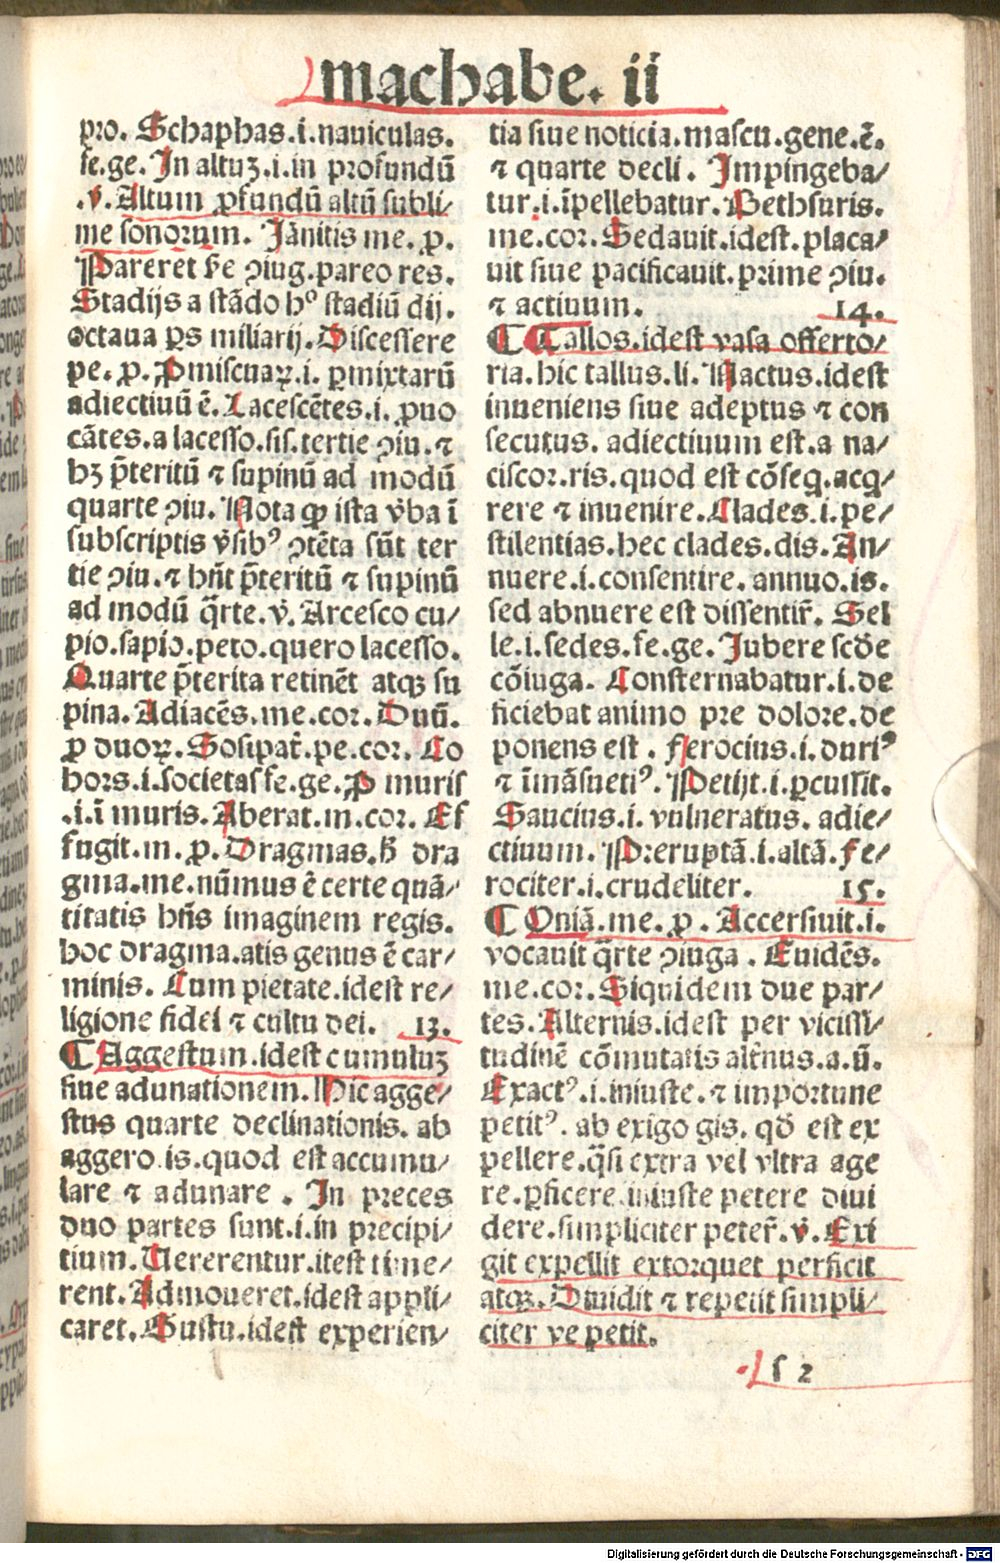 machabe. ii
pro. Schaphas.i.nauiculas.
fe.ge. In altuʒ.i.in profundū
.v̇. Altum ꝓfundū altū subli/
me sonorum. Iānitis me. ꝓ.
Pareret fe ꝯiug.pareo res.
Stadijs a stādo hº stadiū dij.
octaua ꝑs miliarij. Discessere
pe. ꝓ. Pmiscuaꝝ.i. ꝑmixtarū
adiectiuū ē. Lacescētes.i. ꝓuo
cātes. a lacesso.sis. tertie ꝯiu. ⁊
hʒ p̄teritū ⁊ supinū ad modū
quarte ꝯiu. Nota ꝙ ista v̄ba ī
subscriptis v̄sibꝰ ꝯtēta sūt ter
tie ꝯiu. ⁊ hn̄t p̄teritū ⁊ supinū
ad modū q̄rte. v̇. Arcesco cu/
pio.sapio.peto.quero lacesso.
Quarte p̄terita retinēt atqʒ su
pina. Adiacēs.me.cor. Duū.
ꝓ duoꝝ. Sosipat̄.pe.cor. Co
hors.i.societas fe.ge. P muris
.i.ī muris. Aberat.in.cor. Ef
fugit.in. ꝓ. Dragmas.h̄ dra
gma.me.nūmus ē certe quā/
titatis hn̄s imaginem regis.
hoc dragma.atis genus ē car/
minis. Cum pietate.idest re/
ligione fidei ⁊ cultu dei. 13.
¶ Aggestum.idest cumuluʒ
siue adunationem. Hic agge/
stus quarte declinationis. ab
aggero.is.quod est accumu/
lare ⁊ adunare . In preces
duo partes sunt.i.in precipi/
tium. Uererentur.itest time/
rent. Admoueret.idest appli/
caret. Gustu.idest experien/
tia siue noticia.mascu.gene.ē.
⁊ quarte decli . Impingeba/
tur.i.īpellebatur. Bethsuris.
me.cor. Sedauit.idest.placa/
uit siue pacificauit.prime ꝯiu.
⁊ actiuum. 14.
¶ Tallos.idest vasa offerto/
ria.hic tallus.li. Nactus.idest
inueniens siue adeptus ⁊ con
secutus. adiectiuum est.a na/
ciscor.ris.quod est cōseq̄.acq̄/
rere ⁊ inuenire. Clades.i.pe/
stilentias.hec clades.dis. An/
nuere.i.consentire. annuo.is.
sed abnuere est dissentir̄. Sel
le.i.sedes.fe.ge. Iubere scd̄e
cōiuga. Consternabatur.i.de
ficiebat animo pre dolore.de
ponens est . Ferocius.i.duriꝰ
⁊ īmāsuetiꝰ. Petijt.i.ꝑcussit.
Saucius.i. vulneratus. adie/
ctiuum. Preruptā.i.altā. Fe/
rociter.i.crudeliter. 15.
¶ Oniā.me. ꝓ . Accersiuit.i.
vocauit q̄rte ꝯiuga . Euidēs.
me.cor. Siquidem due par/
tes. Alternis.idest per vicissi/
tudinē cōmutatis alt̄nus.a.ū.
Exactꝰ.i.iniuste. ⁊ importune
petitꝰ. ab exigo gis. qd̄ est ex
pellere.q̄si extra vel vltra age
re.ꝑficere.iniuste petere diui
dere.simpliciter peter̄. v̇. Exi
git expellit extorquet perficit
atqʒ. Diuidit ⁊ repetit simpli/
citer ve petit.
s 2
Digitalisierung gefördert durch die Deutsche Forschungsgemeinschaft - DFG